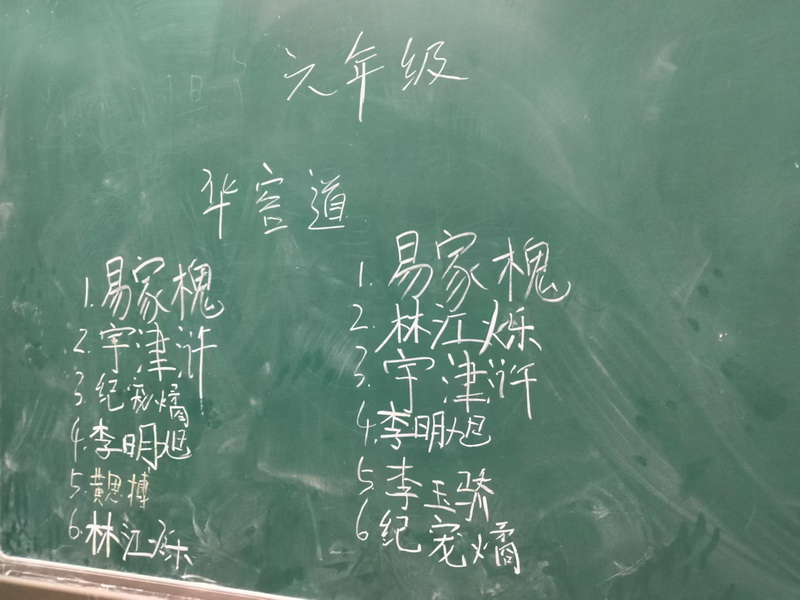 六年级
华容道
1.易家槐
2.宇津浒
3.纪宠燏
4.李明旭
5.黄思博
6.林江烁
1.易家槐
2.林江烁
3.宇津浒
4.李明旭
5.李玉骄
6.纪宠燏